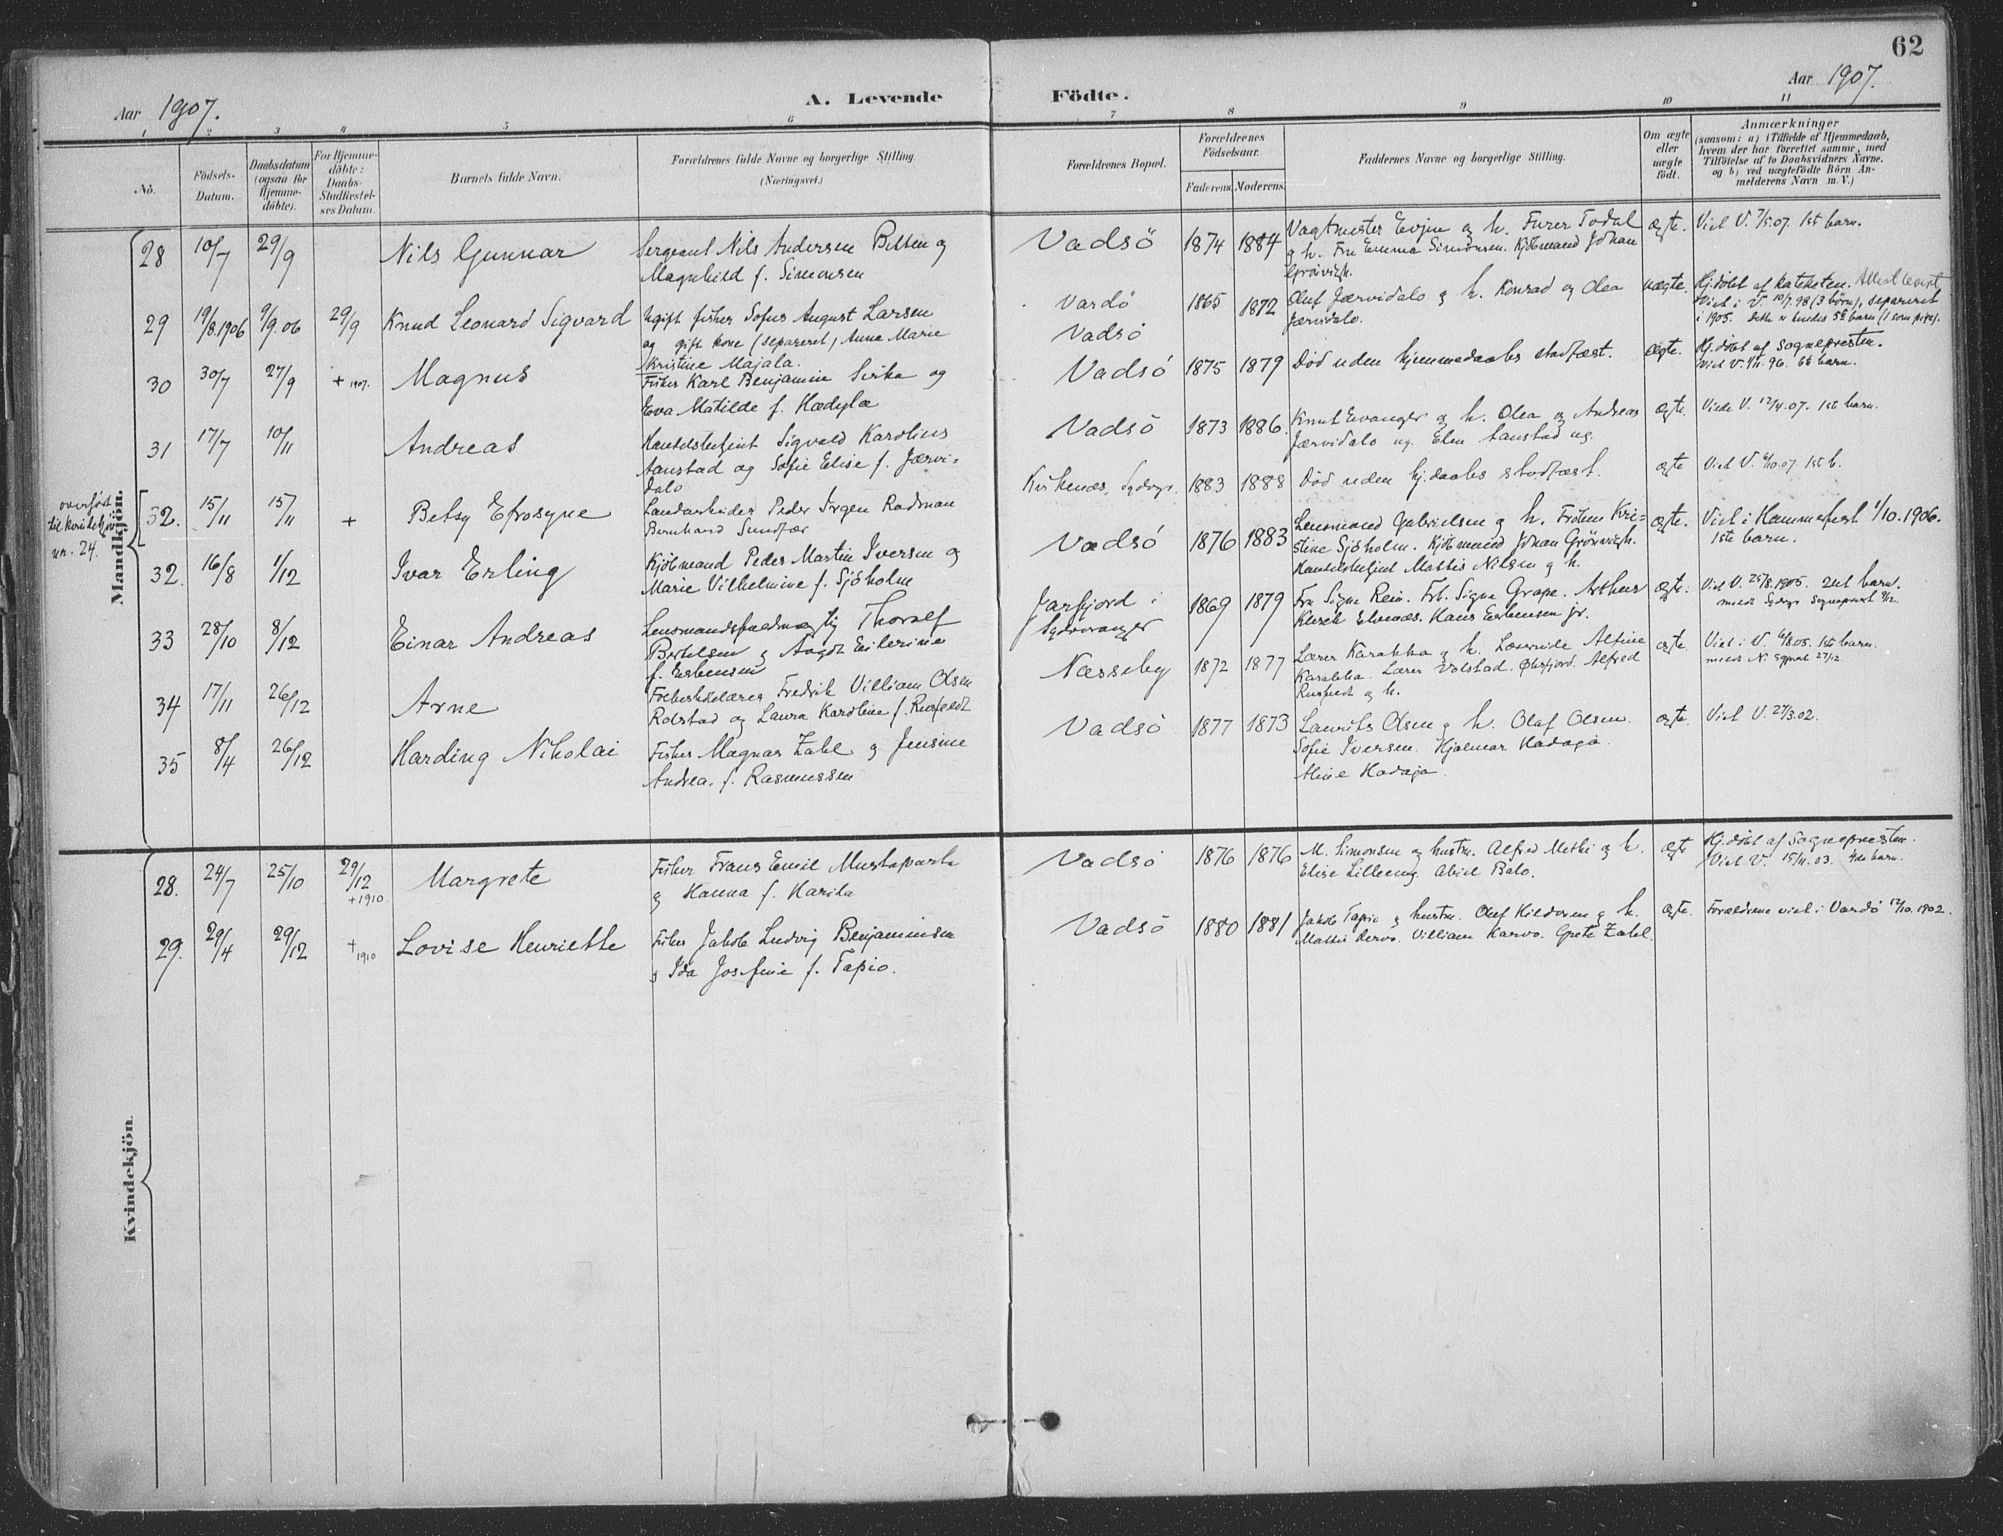 62
Aar 1907.
A. Levende Födte.
Aar 1907.
1 2 3 4 5 6 7 8 9 10 11
No.
Födsels-Datum.
Daabsdatum (ogsaa for Hjemme-döbte).
For Hjemme-döbte: Daabs-Stadfæstel-ses Datum.
Barnets fulde Navn.
Forældrenes fulde Navne og borgerlige Stilling. (Næringsvei.)
Forældrenes Bopæl.
Forældrenes Födselsaar.
Faderens. Moderens.
Faddernes Navne og borgerlige Stilling.
Om ægte eller uægte födt.
Anmærkninger
(saasom: a) i Tilfælde af Hjemmedaab,
hvem der har forrettet samme, med
Tilföielse af to Daabsvidners Navne.
og b) ved uægtefödte Börn An-
melderens Navn m. V.)
Mandkjön.
28 10/7 29/9 Nils Gunnar
Sergeant Nils Andersen Betten og
Magnhild f. Simonsen
Vadsö 1874 1884
Vagtmester Evjen og h. Furer Todal
og h. Fru Emma Simonsen. Kjöbmand Johan
Grönvigh.
ægte. Viet V. 7/5 07. 1st barn.
29 19/8.1906 9/9.06 29/9 Knud Leonard Sigvard
Ugift fisher Sofus August Larsen
og gift kone (separeret) Anna Marie
Kristine Majala.
Vardö
Vadsö
1865 1872
Oluf Jærvidalo og h. Konrad og Olea
Jærvidalo.
uægte. Hj.döbt af kateketen. Attest levert
Viet i V. 10/7.98 (3 börn), separeret
i 1905. Dette er hendes 5te barn (1 som pige).
30 30/7 27/9 + 1907. Magnus
Fisher Karl Benjamin Sirka og
Eva Matilde f. Hædylæ
Vadsö 1875 1879
Död uden hjemmedaabs stadfæst.
Ægte. Hj.döbt af Sognepresten.
Viet V. 1/11.96. 6te barn.
31 17/7 10/11 Andreas
Handelsbetjent Sigvald Karolius
Aanstad og Sofie Elise f. Jærvi-
dalo
Vadsö 1873 1886.
Knut Evanger og h. Olea og Andreas
Jærvidalo ug. Elen Aanstad ug.
Ægte. Viede V. 12/4.07. 1st barn.
overfört
til kvindekjön
nr. 24.
32. 15/11 15/11 + Betsy Efrosyne
Landarbeider Peder Jörgen Rodman
Bernhard Sundfær
Kirkenæs, Sydvgr. 1883 1888
Död uden hj.daabs stadfæst.
ægte Viet V. 6/10.07 1st b.
32. 16/8 1/12 Ivar Erling
Kjöbmand Peder Martin Iversen og
Marie Vilhelmine f. Sjöholm
Vadsö 1876 1883
Lensmand Gabrielsen og h. Fröken Kri-
stine Sjöholm. Kjöbmand Johan Grönvigh.
Handelsbetjent Mattis Nilsen og h.
ægte. Viet i Hammerfest 1/10.1906.
1ste barn.
33 28/10 8/12 Einar Andreas
Lensmandsfuldmægtig Thoralf
Bertelsen og Aagot Eilerine
f. Esbensen
Jarfjord i
Sydvaranger
1869 1879
Fru Signe Rein. Frk. Signe Grape. Arthur
Klerck Elvenæs. Hans Esbensen jr.
Ægte. Viet V. 25/8.1905. 2det barn.
meldt Sydvgr Sognepræst 9/12.
34 17/11 26/12 Arne
Folkeskolelærer Fredrik Villiam Olsen
Rolstad og Laura Karoline f. Rusfeldt
Næsseby 1872 1877
Lærer Karakka og h. Lærerinde Alfine
Karakka. Lærer Volstad. Öksfjord. Alfred
Rusfeldt og h.
ægte Viet i V. 6/8 05. 1st barn.
meldt N. Sognpr. 27/12.
35 8/4 26/12 Harding Nikolai
Fisher Magnus Zahl og Jensine
Andrea f. Rasmussen
Vadsö 1877 1873
Laurits Olsen og h. Olaf Olsen.
Sofie Iversen. Hjalmar Hadaja.
Aline Hadaja.
ægte. Viet V. 27/3.02.
Kvindekjön.
28. 24/7 25/10 29/12 +1910. Margrete
Fisher Frans Emil Mustaparta
og Hanna f. Harila
Vadsö 1876 1876
M. Simonsen og hustru. Alfred Methi og h.
Elise Lilleeng. Abiel Palo.
ægte Hj.döbt af Sognepresten.
Viet V. 15/11.03. 4de barn.
29. 29/4 29/12 + 1910 Lovise Henriette
Fisher Jakob Ludvig Benjaminsen
og Ida Josefine f. Tapio.
Vadsö 1880 1881
Jakob Tapio og hustru. Oluf Hildonen og h.
Mattis Dervo. Villiam Karvo. Grete Zahl.
Ægte. Forældrene viet i Vardö 12/10.1902.